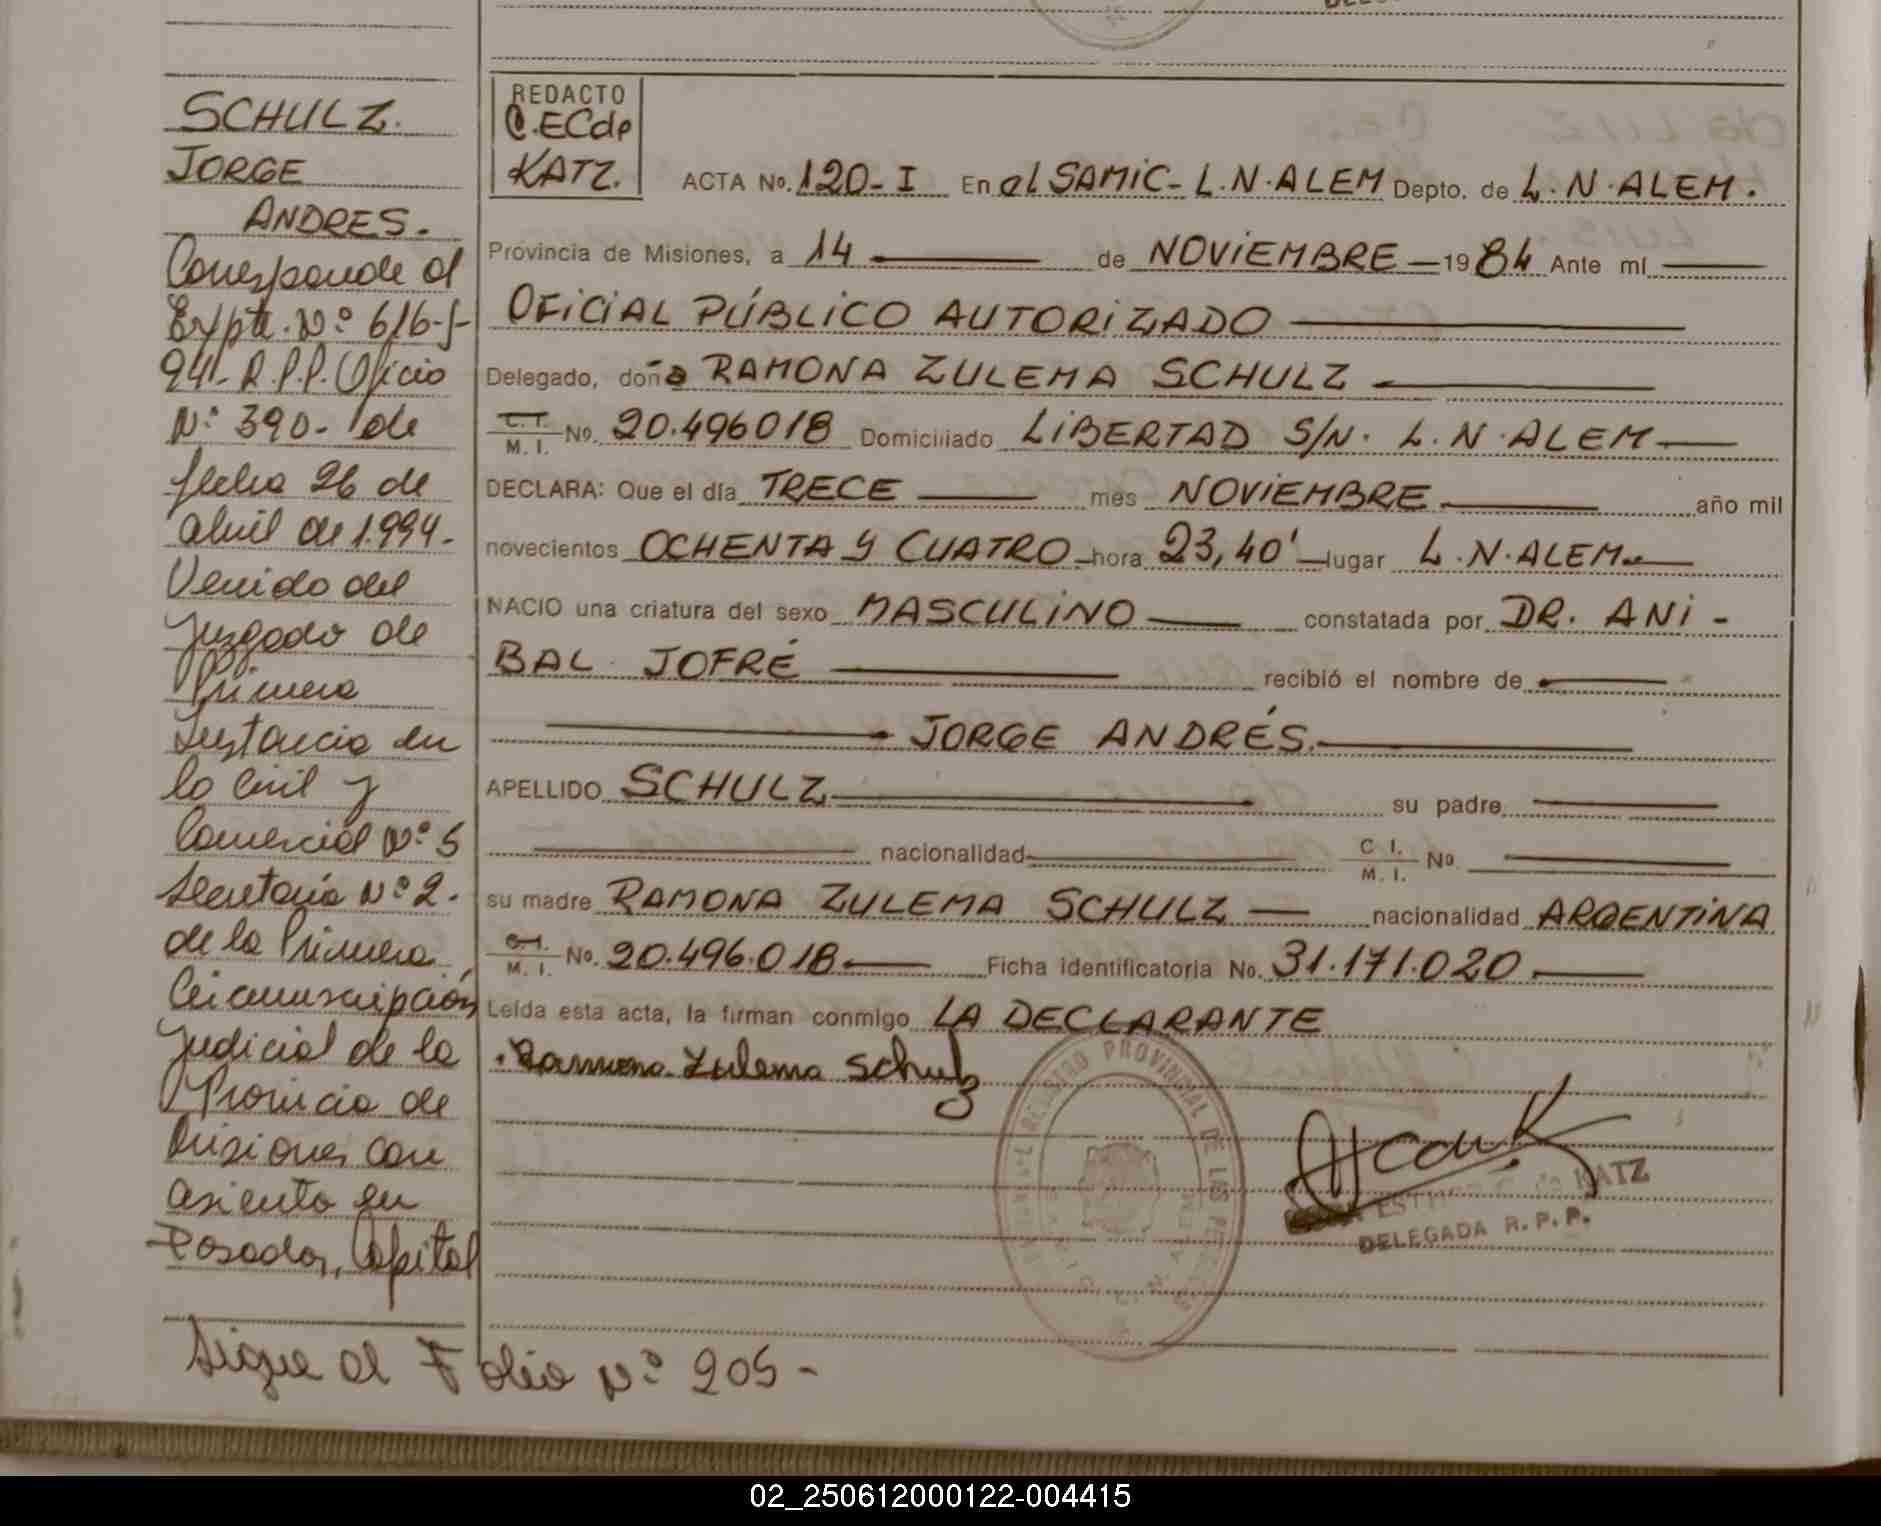 SCHULZ.
JORGE
ANDRES.
Corresponde al
Expte. Nº 616-S-
94- R.P.P. Oficio
Nº 390- de
fecha 26 de
abril de 1.994-
Venido del
Juzgado de
Primera
Instancia en
lo Civil y
Comercial Nº 5
Secretaría Nº 2.
de la Primera
Circunscripción
Judicial de la
Provincia de
Misiones con
asiento en
Posadas, Capital
Sigue al Folio Nº 205-
REDACTO
C.ECdp
KATZ.
ACTA No. 120-I En el SAMIC- L.N.ALEM Depto. de L.N.ALEM.
Provincia de Misiones, a 14 de NOVIEMBRE 1984 Ante mí
OFICIAL PÚBLICO AUTORIZADO
Delegado, doña RAMONA ZULEMA SCHULZ
C.I. M.I. No. 20.496018 Domiciliado LIBERTAD S/N. L.N.ALEM
DECLARA: Que el día TRECE mes NOVIEMBRE año mil
novecientos OCHENTA y CUATRO hora 23,40' lugar L.N.ALEM.
NACIO una criatura del sexo MASCULINO constatada por DR. ANI-
BAL JOFRÉ recibió el nombre de
JORGE ANDRÉS.
APELLIDO SCHULZ su padre
nacionalidad C I. M. I. No
su madre RAMONA ZULEMA SCHULZ nacionalidad ARGENTINA
C.I. M. I. No. 20.496.018 Ficha identificatoria No. 31.171.020
Leída esta acta, la firman conmigo LA DECLARANTE
Ramona Zulema Schulz
REGISTRO PROVINCIAL DE LAS PERSONAS
de KATZ
DELEGADA R.P.P.
02_250612000122-004415